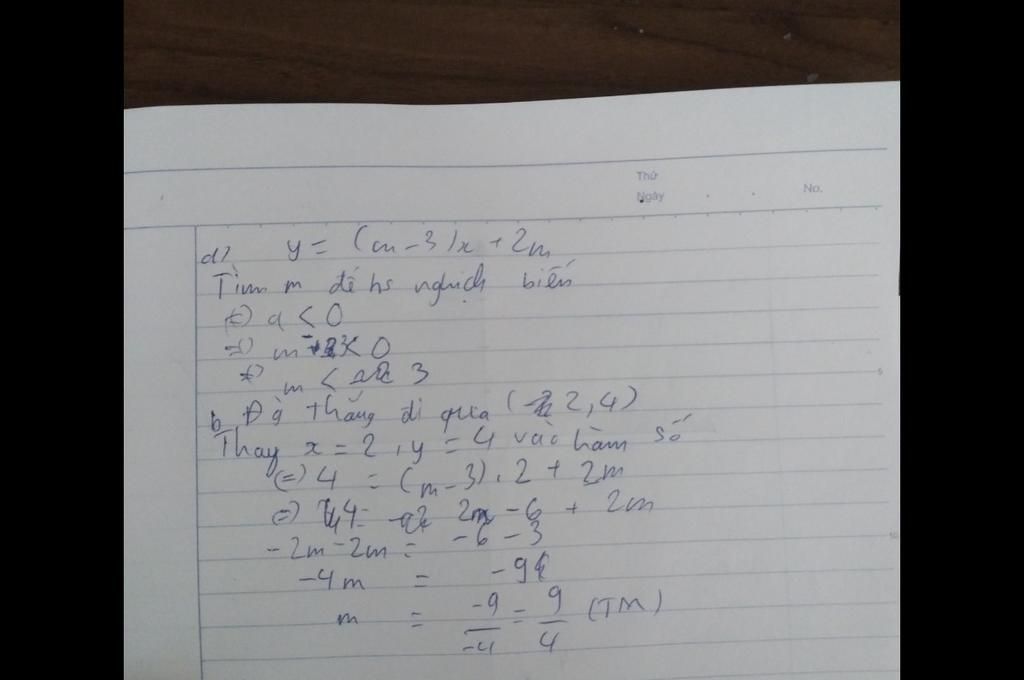 Thứ
Ngày No.
a) y = (m - 3)x + 2m
Tìm m để hs nghịch biến
(=) a < 0
=) m - 3 < 0
m < 3
b Đg thẳng đi qua ( 2, 4)
Thay x = 2, y = 4 vào hàm số
(=) 4 = (m - 3) . 2 + 2m
=) 4 = 2m - 6 + 2m
-2m - 2m = -6 - 3
-4m = -9
m = -9/-4 = 9/4 (TM)
5
10